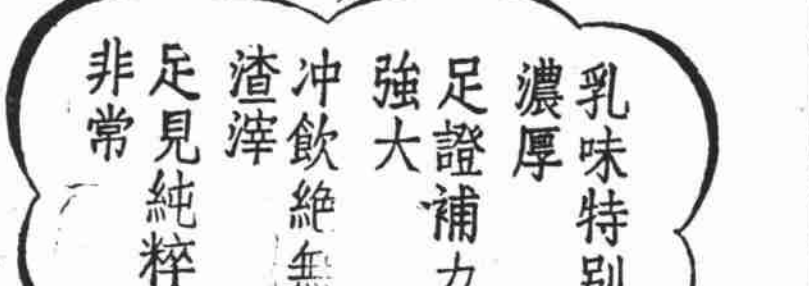 乳味特別
濃厚
足證補力
強大
冲飲絶無
渣滓
足見純粹
非常